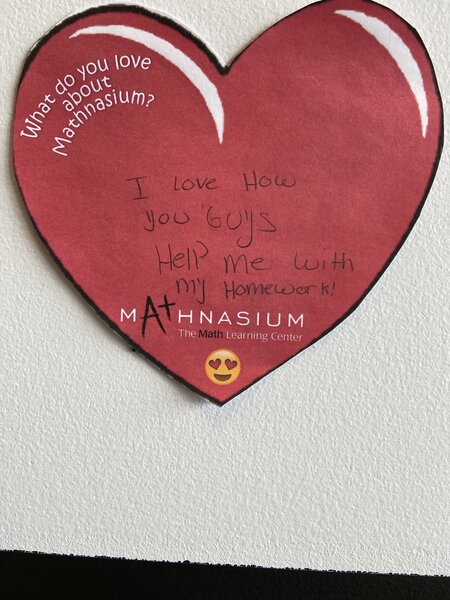 What do you love
about
Mathnasium?
I love How
you Guys
Help me with
my Homework!
MA+HNASIUM
The Math Learning Center